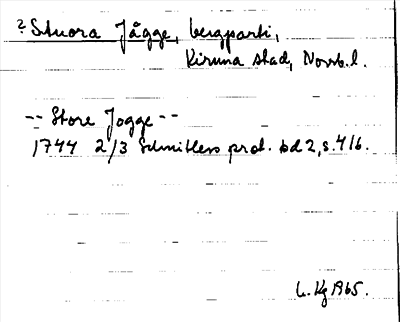 ? Stuora Jågge, bergparti,
Kiruna stad, Norrb. l.
-- Store Jogge --
1744 2/3 Schnitlers prot. bd 2, s. 416.
L. Kg 1965.